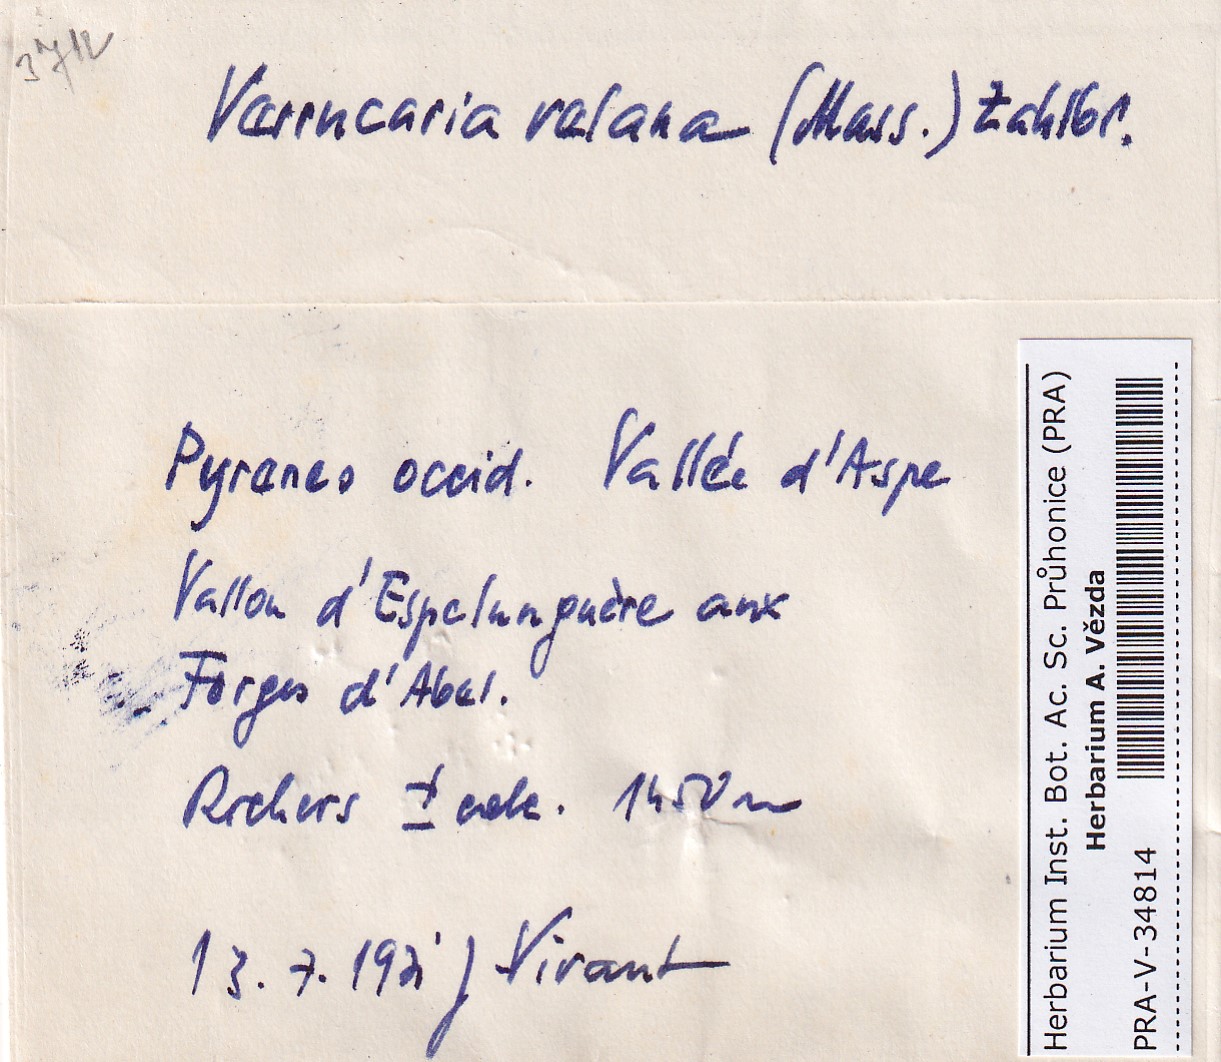 3712
Verrucaria velana (Mass.) Zahlbr.
Pyreneo occid. Vallée d'Aspe
Vallon d'Espelunguère aux
Forges d'Abel.
Rochers ± calc. 1450 m
13. 7. J Vivant
Herbarium Inst. Bot. Ac. Sc. Průhonice (PRA)
Herbarium A. Vězda
PRA-V-34814